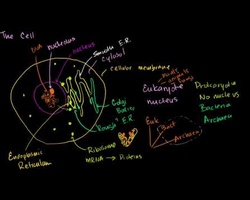 The Cell
DNA
nucleolus
nucleus
Smooth E.R.
Cytosol
Cellular membrane
Golgi
Bodies
Rough E.R
Ribosome
MRNA → Proteins
Endoplasmic
Reticulum
Eukaryote
nucleus
Prokaryote
No nucleus
Bacteria
Archaea
Euk
Bact
Archaea